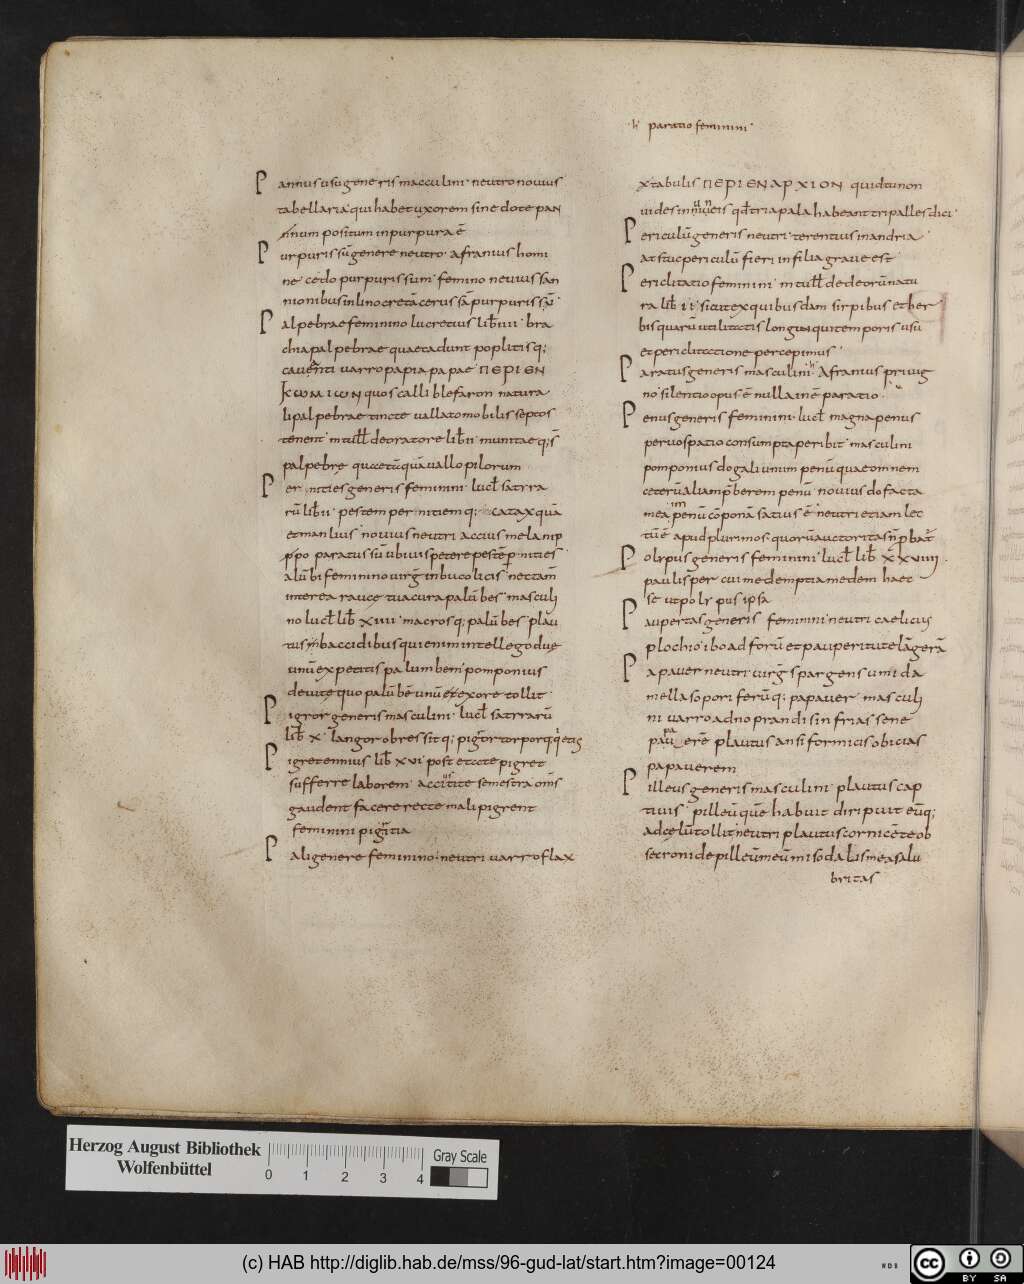 ·h· paratio feminini·
Pannus usu generis masculini· neutro novius
tabellaria· qui habet uxorem sine dote pan
num positum in purpura ē
Purpurissū genere neutro· afranius homi
ne· cedo purpurissum· femino nevius san
nionibus in lino cretā cerussā purpurissū·
Palpebrae feminino lucretius lib̄ iiii· bra
chia palpebrae quae cadunt poplitisq;
cauenti varro papia papae ΠΕΡΙΕΝ
ΚωΜΙωΝ quos calliblefaron natura
li palpebrae tincte vallato mobili septos
tenent· m tull̄ de oratore lib̄ ii· munitaeq;s̄
palpebre quccetū quā vallo pilorum
Pernities generis feminini· lucl̄ satira
rū lib̄ ii· pestem pernitiemq; catax quā
et manlius· novius neutri accius melanip
ppo paratus sū ubi vis petere pestē pernities·
Palūbi feminino virḡ in bucolicis nec tam̄
interea rauce tua cura palūbes· masculi
no lucl̄ lib̄ xiiii· macrosq; palūbes· plau
tus in baccidibus qui enim intellego due
unū expetitis palumbem· pomponius
devite quo palūbē unū et exore tollit·
Pigror generis masculini· lucl̄ satirarū
lib̄ x· langor obressitq; pigror torporq; q̄etis
Pigret ennius lib̄ xvi post etate pigret
sufferre laborem· accius tite semestra om̄s
gaudent facere recte mali pigrent
feminini pigritia
Pali genere feminino· neutri varro flax
xtabulis ΠΕΡΙΕΝΑΡΧΙΟΝ quid tu non
vides in vineis qd̄ tria pala habeant tripalles dici·
Periculū generis neutri· terentius in andria
at istuc periculū fieri in filia grave est
Periclitatio feminini· m tull̄ de deorū natu
ra lib̄ ii· sicut ex quibusdam sirpibus et her
bis quarū utilitatis longinqui temporis usū
et periclitatione percepimus·
Paratus generis masculini·h Afranius privig
no· silentio opus ē nulla in ē paratio·
Penus generis feminini· lucl̄ magna penus
pervo spatio consumpta peribit· masculini
pomponius dogali unum penū quae omnem
ceterū aliam p̄berem penū· novius dofacta
mea im penū cōponā satius ē· neutri etiam lec
tū ē apud plurimos· quorū auctoritas n̄ p̄bat̄
Polypus generis feminini· lucl̄ lib̄ xxviiii·
paulisper cui me dempti amedem haec
se ut polypus ipsa
Paupertas generis feminini· neutri caelicius
plochio· ibo ad forū et pauperitute lāgerā
Papaver neutri· virḡ spargens umida
mella soporiferūq; papaver· masculi
ni varro adno prandi sin frias sene
pa pav erē plautus ansi formicis obicias
papaverem
Pilleus generis masculini· plautus cap
tivis· pilleū quē habuit diripuit eūq;
ad celū tollit· neutri plautus cornicēte ob
secro ni de pilleū meū mi sodalis mea salu
britas
Herzog August Bibliothek
Wolfenbüttel
0 1 2 3 4
Gray Scale
(c) HAB http://diglib.hab.de/mss/96-gud-lat/start.htm?image=00124
WDB
CC BY SA